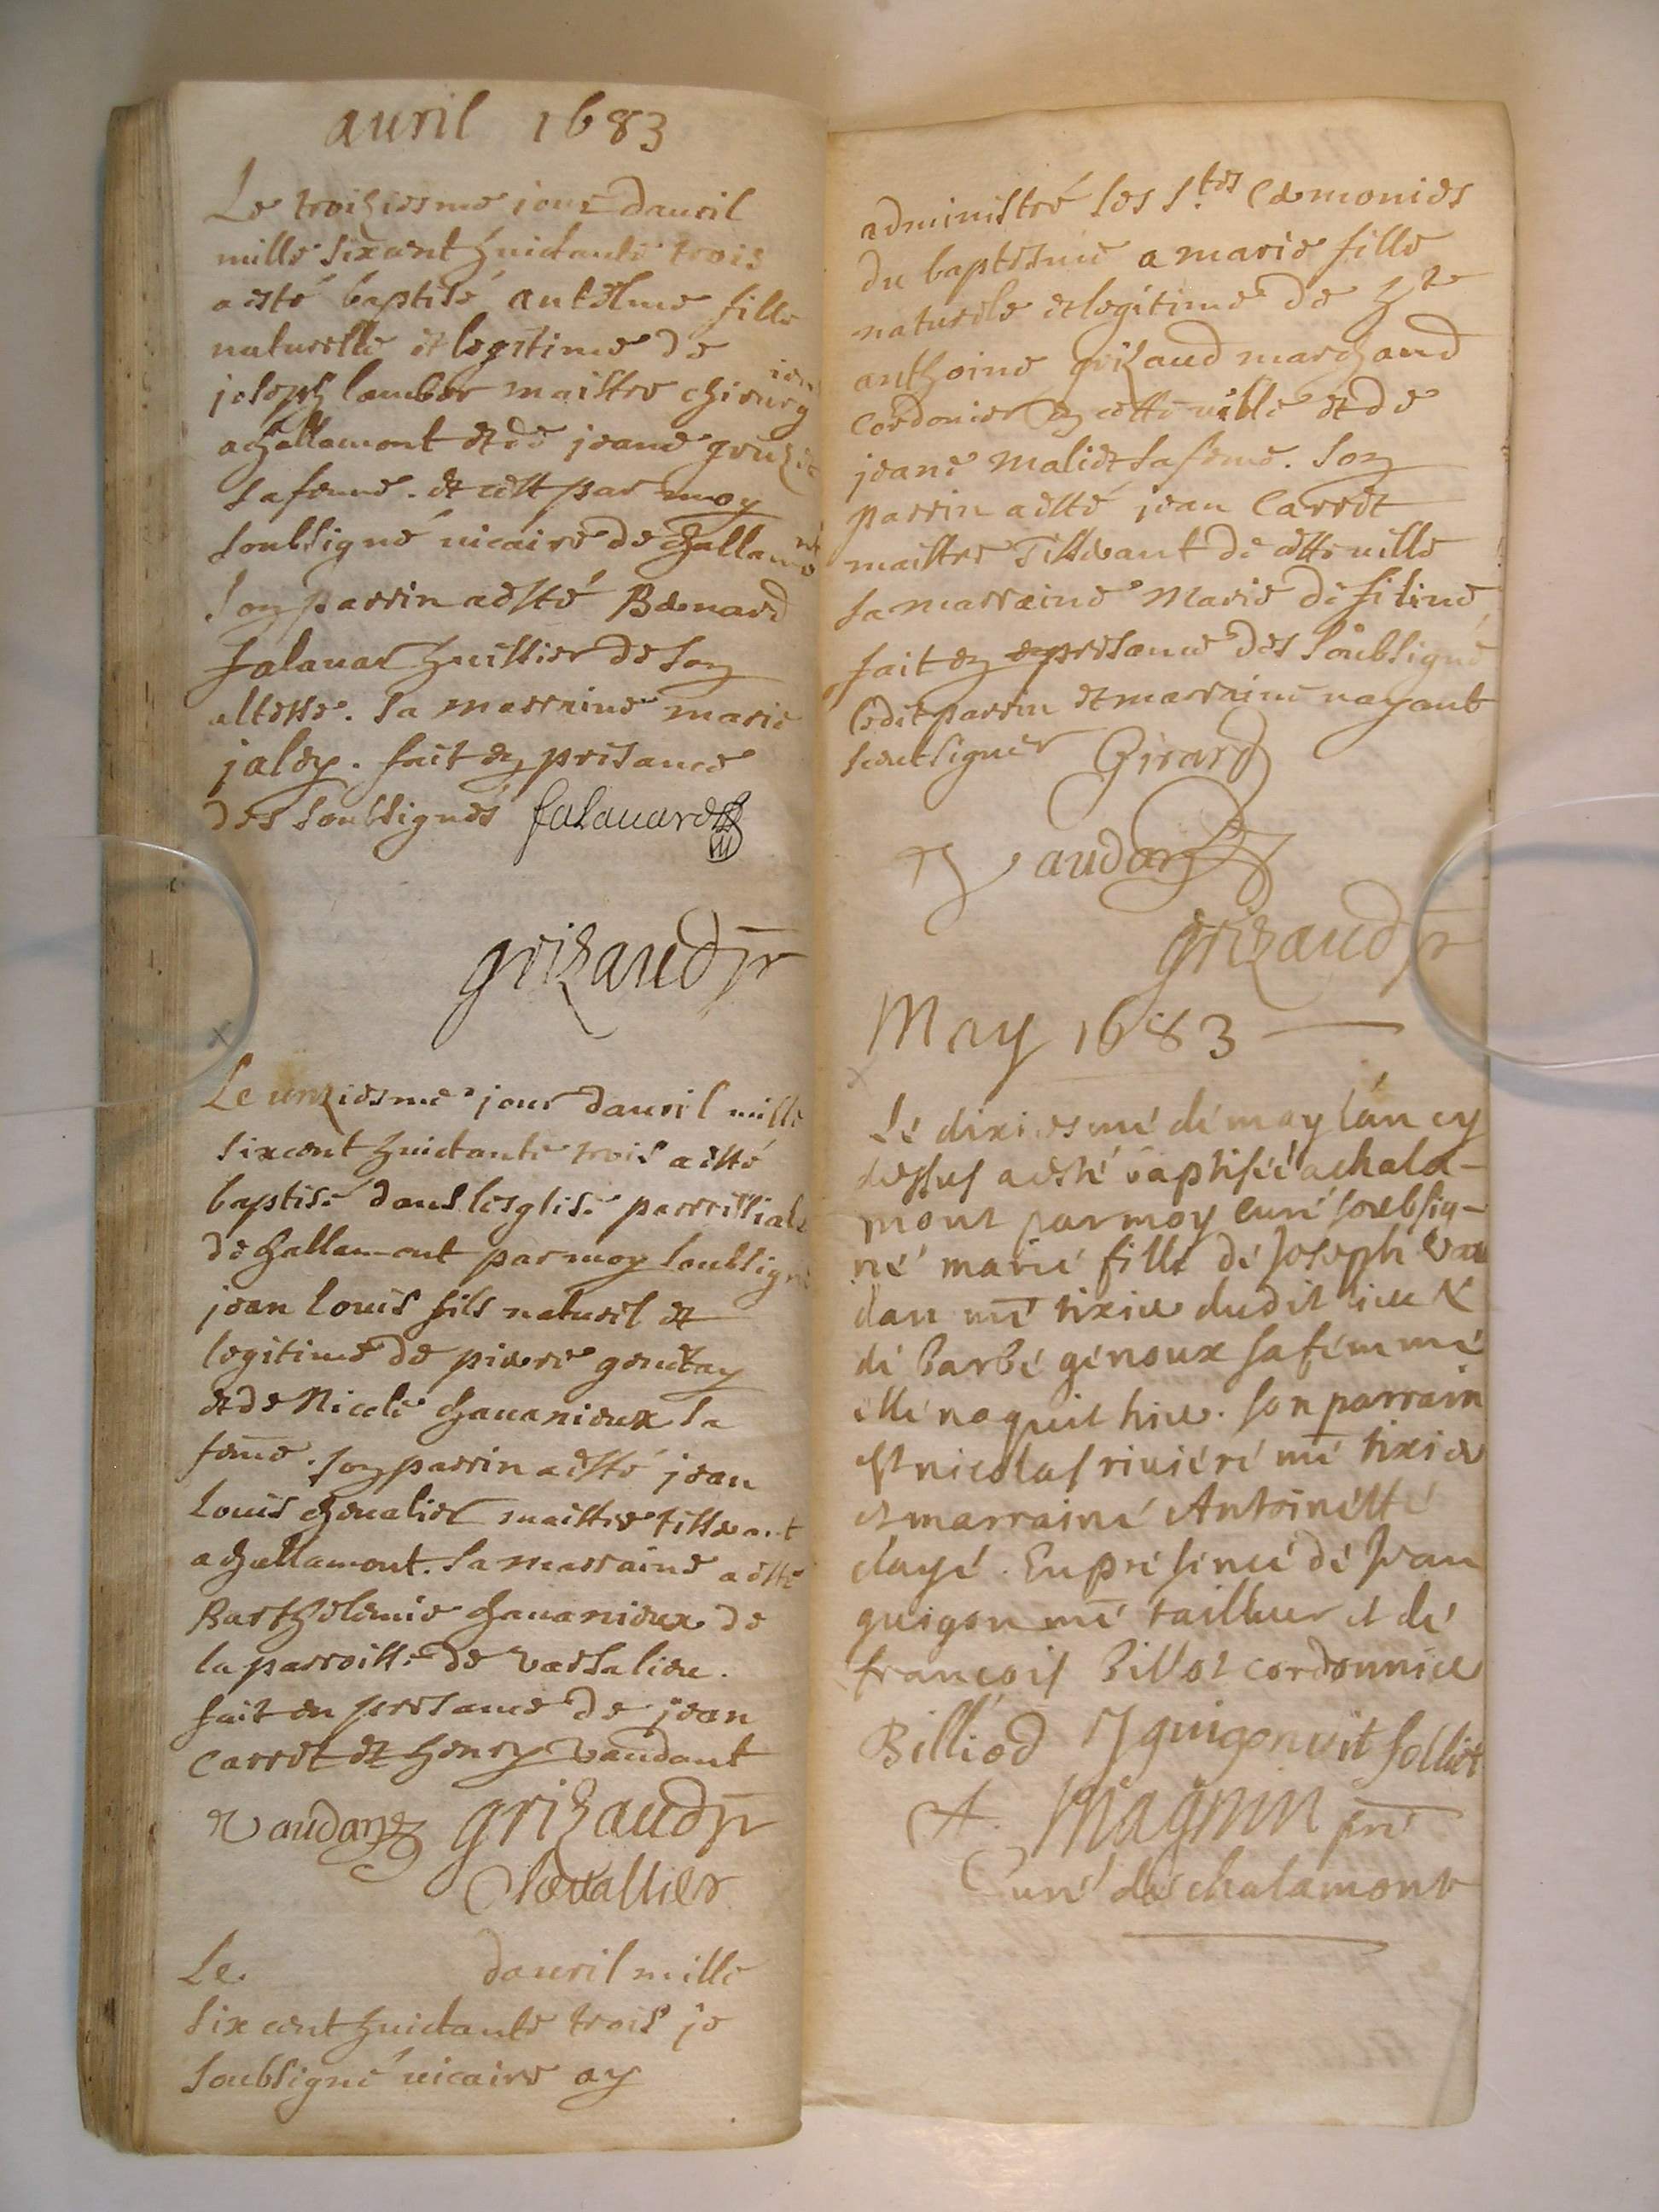 auril 1683
Le troiziesme jour dauril
mille sixcent huictante trois
a esté baptisé antelme fille
naturelle et legitime de
joseph lamber maistre chirurgien
achallamont et de jeane
sa feme. et cest par moy
soubsigné vicaire de challamont
son parrin a esté Bernard
falauar huissier de son
altesse. sa marraine marie
jaley. fait en presance
des soubsignés falauard
grizaud pr
Le unziesme jour dauril mille
sixcent huictante trois a esté
baptisé dans lesglise parroissiale
de challamont par moy soubsigné
jean louis fils naturel et
legitime de pierre genetay
et de Nicole chauanieux sa
feme. son parrin a esté jean
Louis cheualier maistre tisserant
a challamont. sa marraine a esté
Barthelemie chauanieux de
la parroisse de versalieu.
fait en presance de jean
carret et henry vaudant
Vaudan grizaud pr
Cheuallier
Le dauril mille
six cent huictante trois je
soubsigné vicaire ay
administré les s.tes ceremonies
du baptesme a marie fille
naturele et legitime de hte
anthoine grizaud marchand
cordonier en cette ville et de
jeane Maliet sa feme. son
parrin a esté jean Carret
maistre Tisserant de cette ville
sa marraine Marie de
fait en presance des soubsigné
ledit parrin et marraine nayant
sceut signer Girard
h Vaudan
grizaud pr
May 1683
Le dixiesme de may lan cy
dessus a esté baptisée a chala-
mont par moy curé soubsig-
né marie fille de Joseph Vau
dan me tixier dudit lieu &
de barbe genoux sa femme
elle naquit hier. son parrain
est nicolas riuiere me tixier
et marraine Antoinette
claye. En presence de Jean
guigon me tailleur et de
francois billot cordonnier
Billiod J guigon dit folliet
A. Magnin pre
Curé de chalamont